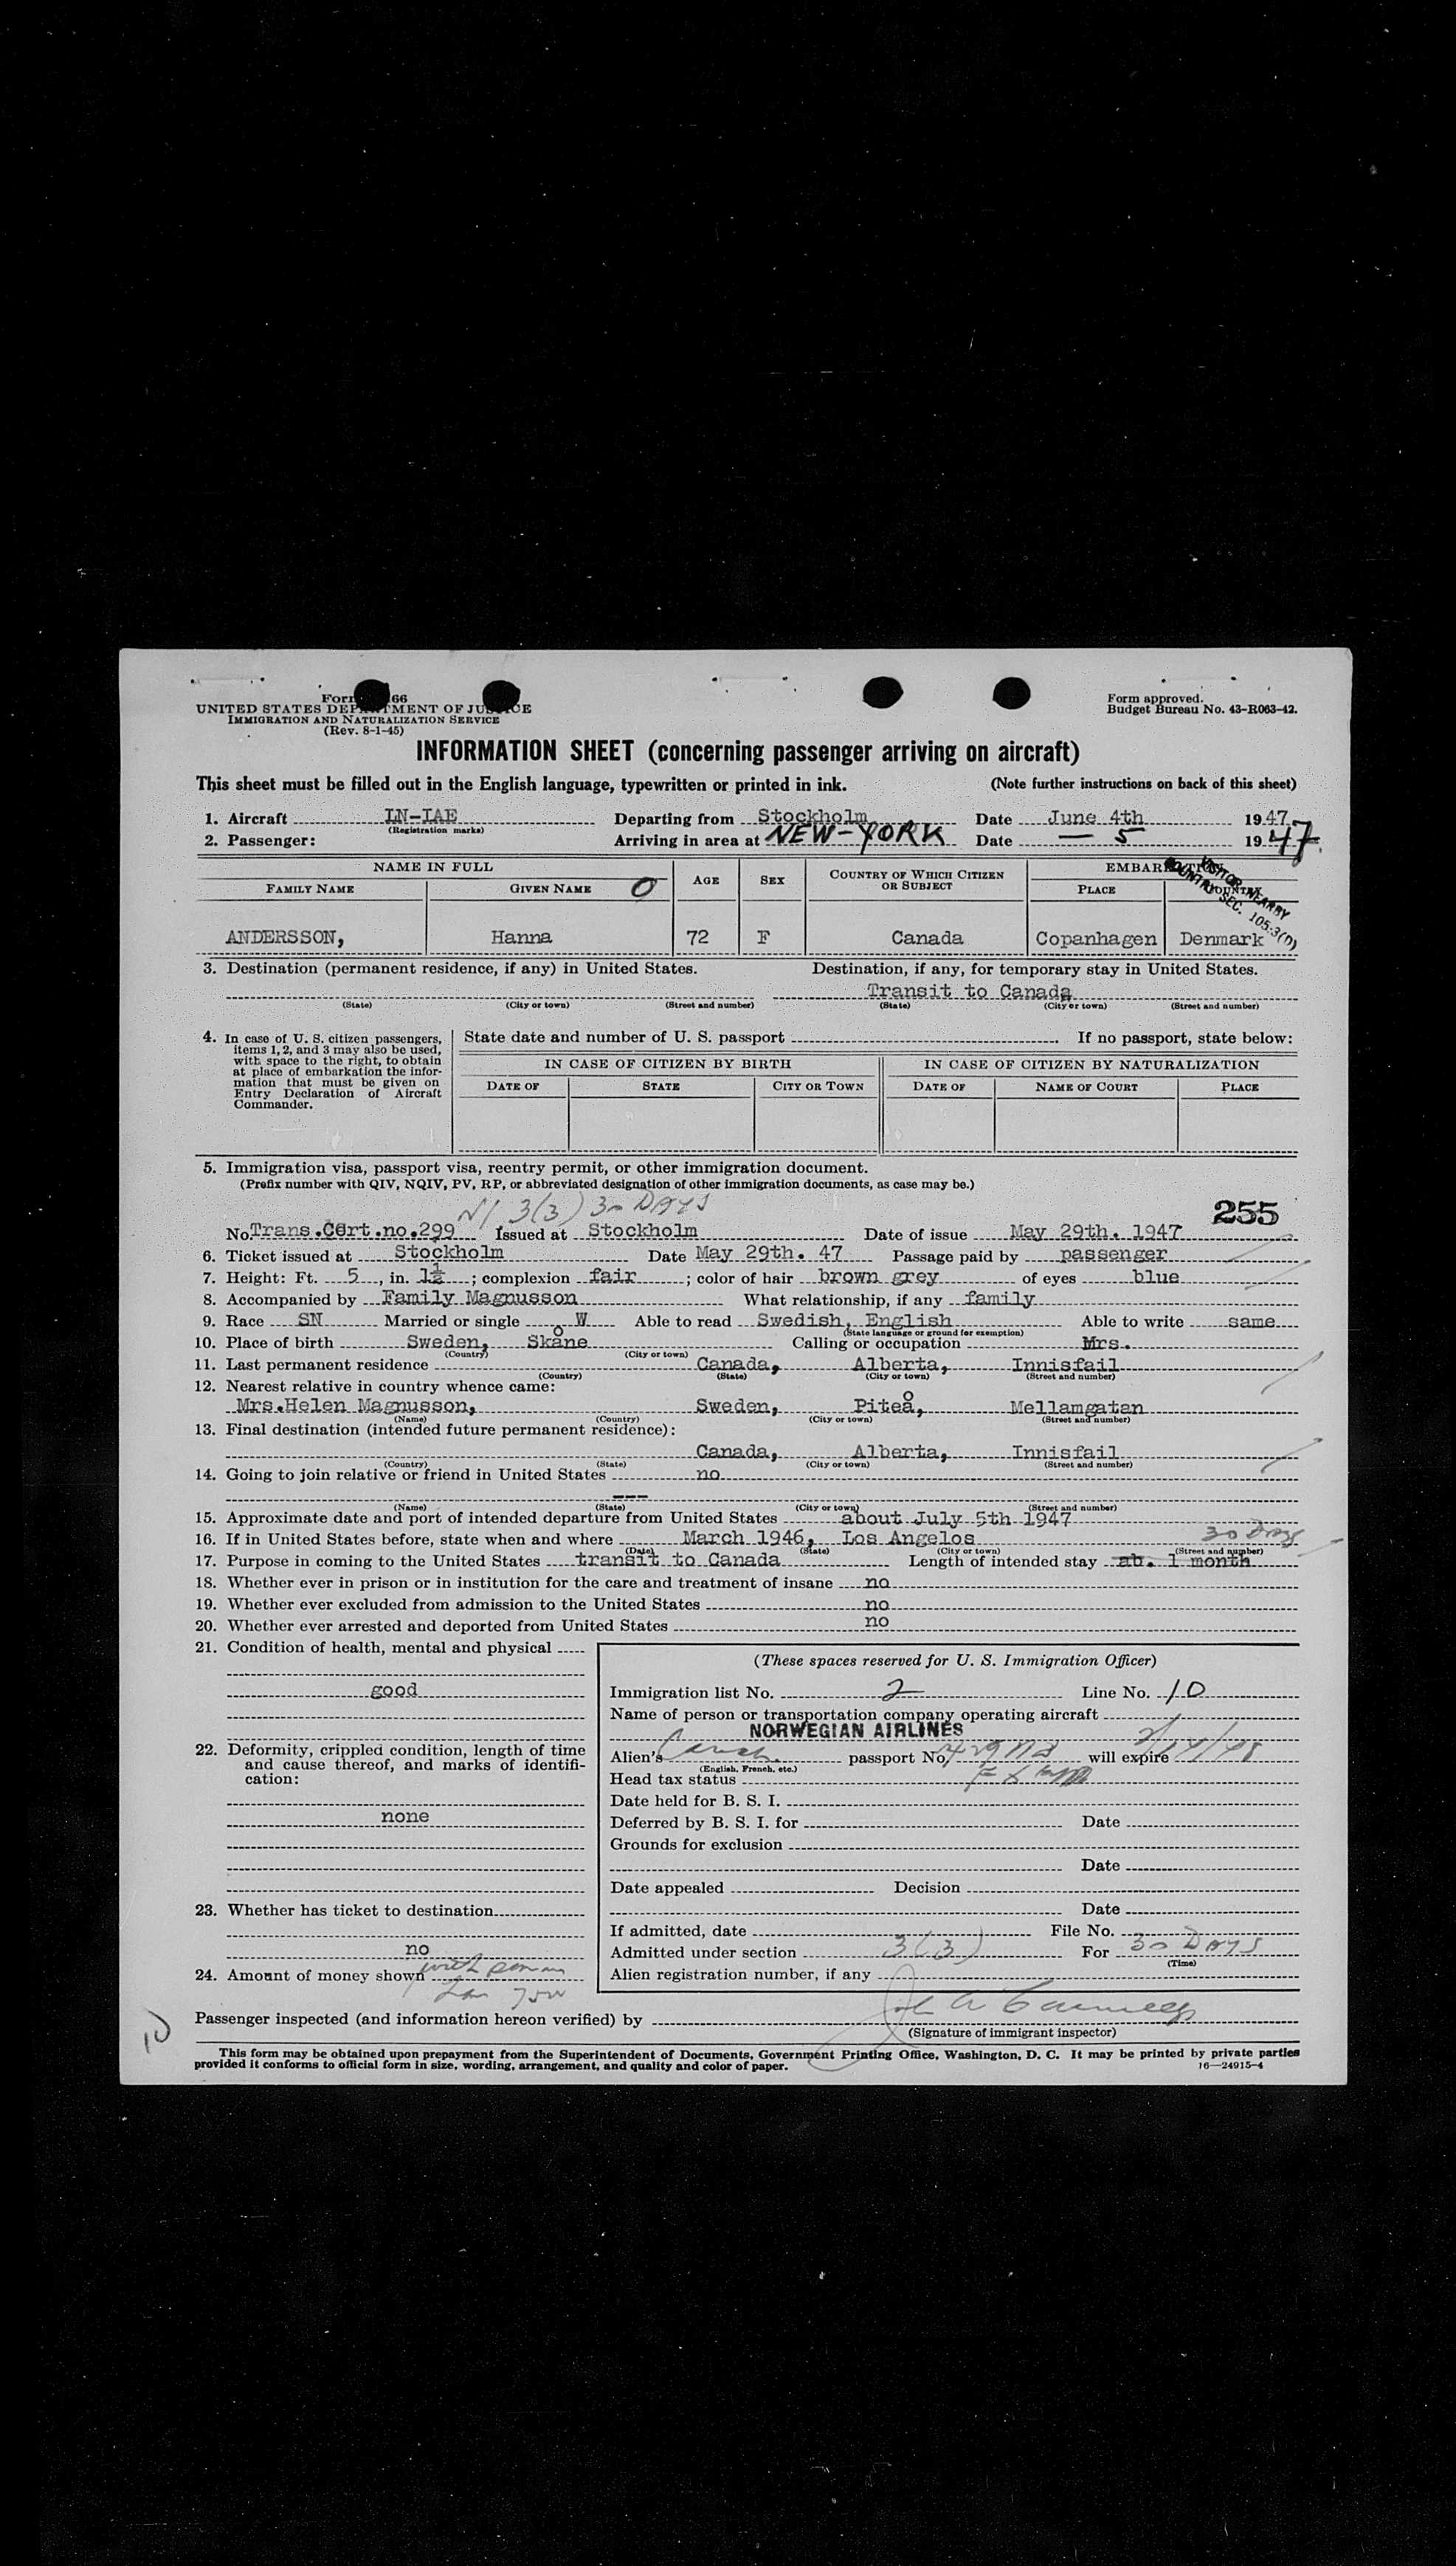 Form 66
UNITED STATES DEPARTMENT OF JUSTICE
IMMIGRATION AND NATURALIZATION SERVICE
(Rev. 8-1-45)
Form approved.
Budget Bureau No. 43-R063-42.
INFORMATION SHEET (concerning passenger arriving on aircraft)
This sheet must be filled out in the English language, typewritten or printed in ink. (Note further instructions on back of this sheet)
1. Aircraft LN-IAE Departing from Stockholm Date June 4th 1947
(Registration marks)
2. Passenger: Arriving in area at NEW-YORK Date — 5 1947
NAME IN FULL AGE SEX COUNTRY OF WHICH CITIZEN OR SUBJECT EMBARKATION
FAMILY NAME GIVEN NAME O PLACE COUNTRY
VISITOR NEARBY
COUNTRY SEC. 105.3(n)
ANDERSSON, Hanna 72 F Canada Copanhagen Denmark
3. Destination (permanent residence, if any) in United States. Destination, if any, for temporary stay in United States.
Transit to Canada
(State) (City or town) (Street and number) (State) (City or town) (Street and number)
4. In case of U. S. citizen passengers, items 1, 2, and 3 may also be used, with space to the right, to obtain at place of embarkation the information that must be given on Entry Declaration of Aircraft Commander.
State date and number of U. S. passport If no passport, state below:
IN CASE OF CITIZEN BY BIRTH IN CASE OF CITIZEN BY NATURALIZATION
DATE OF STATE CITY OR TOWN DATE OF NAME OF COURT PLACE
5. Immigration visa, passport visa, reentry permit, or other immigration document.
(Prefix number with QIV, NQIV, PV, RP, or abbreviated designation of other immigration documents, as case may be.)
3(3) 30 DAYS 255
No. Trans.Cert.no.299 Issued at Stockholm Date of issue May 29th. 1947
6. Ticket issued at Stockholm Date May 29th. 47 Passage paid by passenger
7. Height: Ft. 5, in. 1½; complexion fair; color of hair brown grey of eyes blue
8. Accompanied by Family Magnusson What relationship, if any family
9. Race SN Married or single W Able to read Swedish, English Able to write same
(State language or ground for exemption)
10. Place of birth Sweden, Skåne Calling or occupation Mrs.
(Country) (City or town)
11. Last permanent residence Canada, Alberta, Innisfail
(Country) (State) (City or town) (Street and number)
12. Nearest relative in country whence came:
Mrs.Helen Magnusson, Sweden, Piteå, Mellamgatan
(Name) (Country) (City or town) (Street and number)
13. Final destination (intended future permanent residence):
Canada, Alberta, Innisfail
(Country) (State) (City or town) (Street and number)
14. Going to join relative or friend in United States no
---
(Name) (State) (City or town) (Street and number)
15. Approximate date and port of intended departure from United States about July 5th 1947
16. If in United States before, state when and where March 1946, Los Angelos 30 Days
(Date) (State) (City or town) (Street and number)
17. Purpose in coming to the United States transit to Canada Length of intended stay ab. 1 month
18. Whether ever in prison or in institution for the care and treatment of insane no
19. Whether ever excluded from admission to the United States no
20. Whether ever arrested and deported from United States no
21. Condition of health, mental and physical
good
22. Deformity, crippled condition, length of time and cause thereof, and marks of identification:
none
23. Whether has ticket to destination
no
24. Amount of money shown
(These spaces reserved for U. S. Immigration Officer)
Immigration list No. 2 Line No. 10
Name of person or transportation company operating aircraft
NORWEGIAN AIRLINES
Alien's passport No. will expire 2/14/48
(English, French, etc.)
Head tax status
Date held for B. S. I.
Deferred by B. S. I. for Date
Grounds for exclusion
Date
Date appealed Decision
Date
If admitted, date File No.
Admitted under section 3(3) For 30 DAYS
(Time)
Alien registration number, if any
Passenger inspected (and information hereon verified) by
(Signature of immigrant inspector)
10
This form may be obtained upon prepayment from the Superintendent of Documents, Government Printing Office, Washington, D. C. It may be printed by private parties
provided it conforms to official form in size, wording, arrangement, and quality and color of paper. 16—24915-4